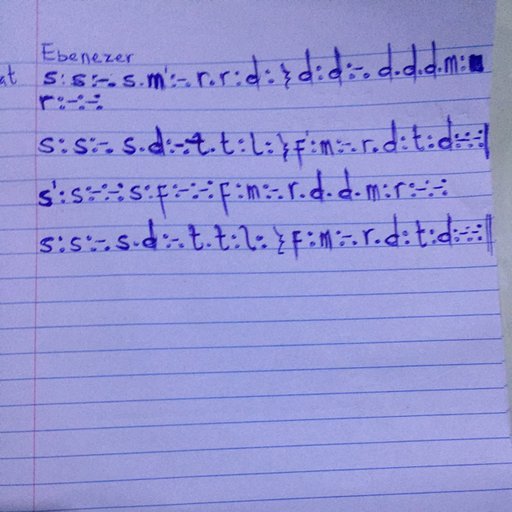 Ebenezer
at s:s:-.s.m':-.r.r:d:}d:d:-.d.d.d.m:
r:-:-:
s:s:-.s.d:-.t.t:l:}f:m:-.r.d:t:d:-:-:|
s':s:-:-:s:f:-:-:f:m:-.r.d.d.m:r:-:-:
s:s:-.s.d:-.t.t:l:}f:m:-.r.d:t:d:-:-:||